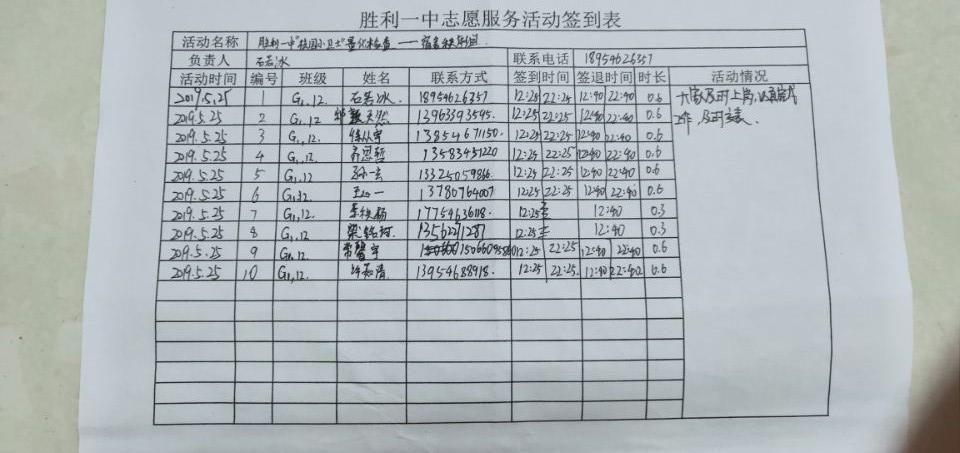 胜利一中志愿服务活动签到表
活动名称 胜利一中"校园小卫士"量化检查——宿舍秩序组
负责人 石若冰 联系电话 18954626357
活动时间 编号 班级 姓名 联系方式 签到时间 签退时间 时长 活动情况
2019.5.25 1 G1.12. 石若冰. 18954626357 12:25 22:25 12:40 22:40 0.6 大家及时上岗,认真完成
2019.5.25 2 G1.12 13963393595. 12:25 22:25 12:40 22:40 0.6 工作,及时
2019.5.25 3 G1.12. 13854671150. 12:25 22:25 12:40 22:40 0.6
2019.5.25 4 G1.12. 13583451220 12:25 22:25 12:40 22:40 0.6
2019.5.25 5 G1.12 13325059866. 12:25 22:25 12:40 22:40 0.6
2019.5.25 6 G1.12 13780764007 12:25 22:25 12:40 22:40 0.6
2019.5.25 7 G1.12. 17754636118. 12:25 12:40 0.3
2019.5.25 8 G1.12 13562271287 12:25 12:40 0.3
2019.5.25 9 G1.12. 12:25 22:25 12:40 22:40 0.6
2019.5.25 10 G1.12. 13954688918. 12:25 22:25. 12:40 22:40 0.6